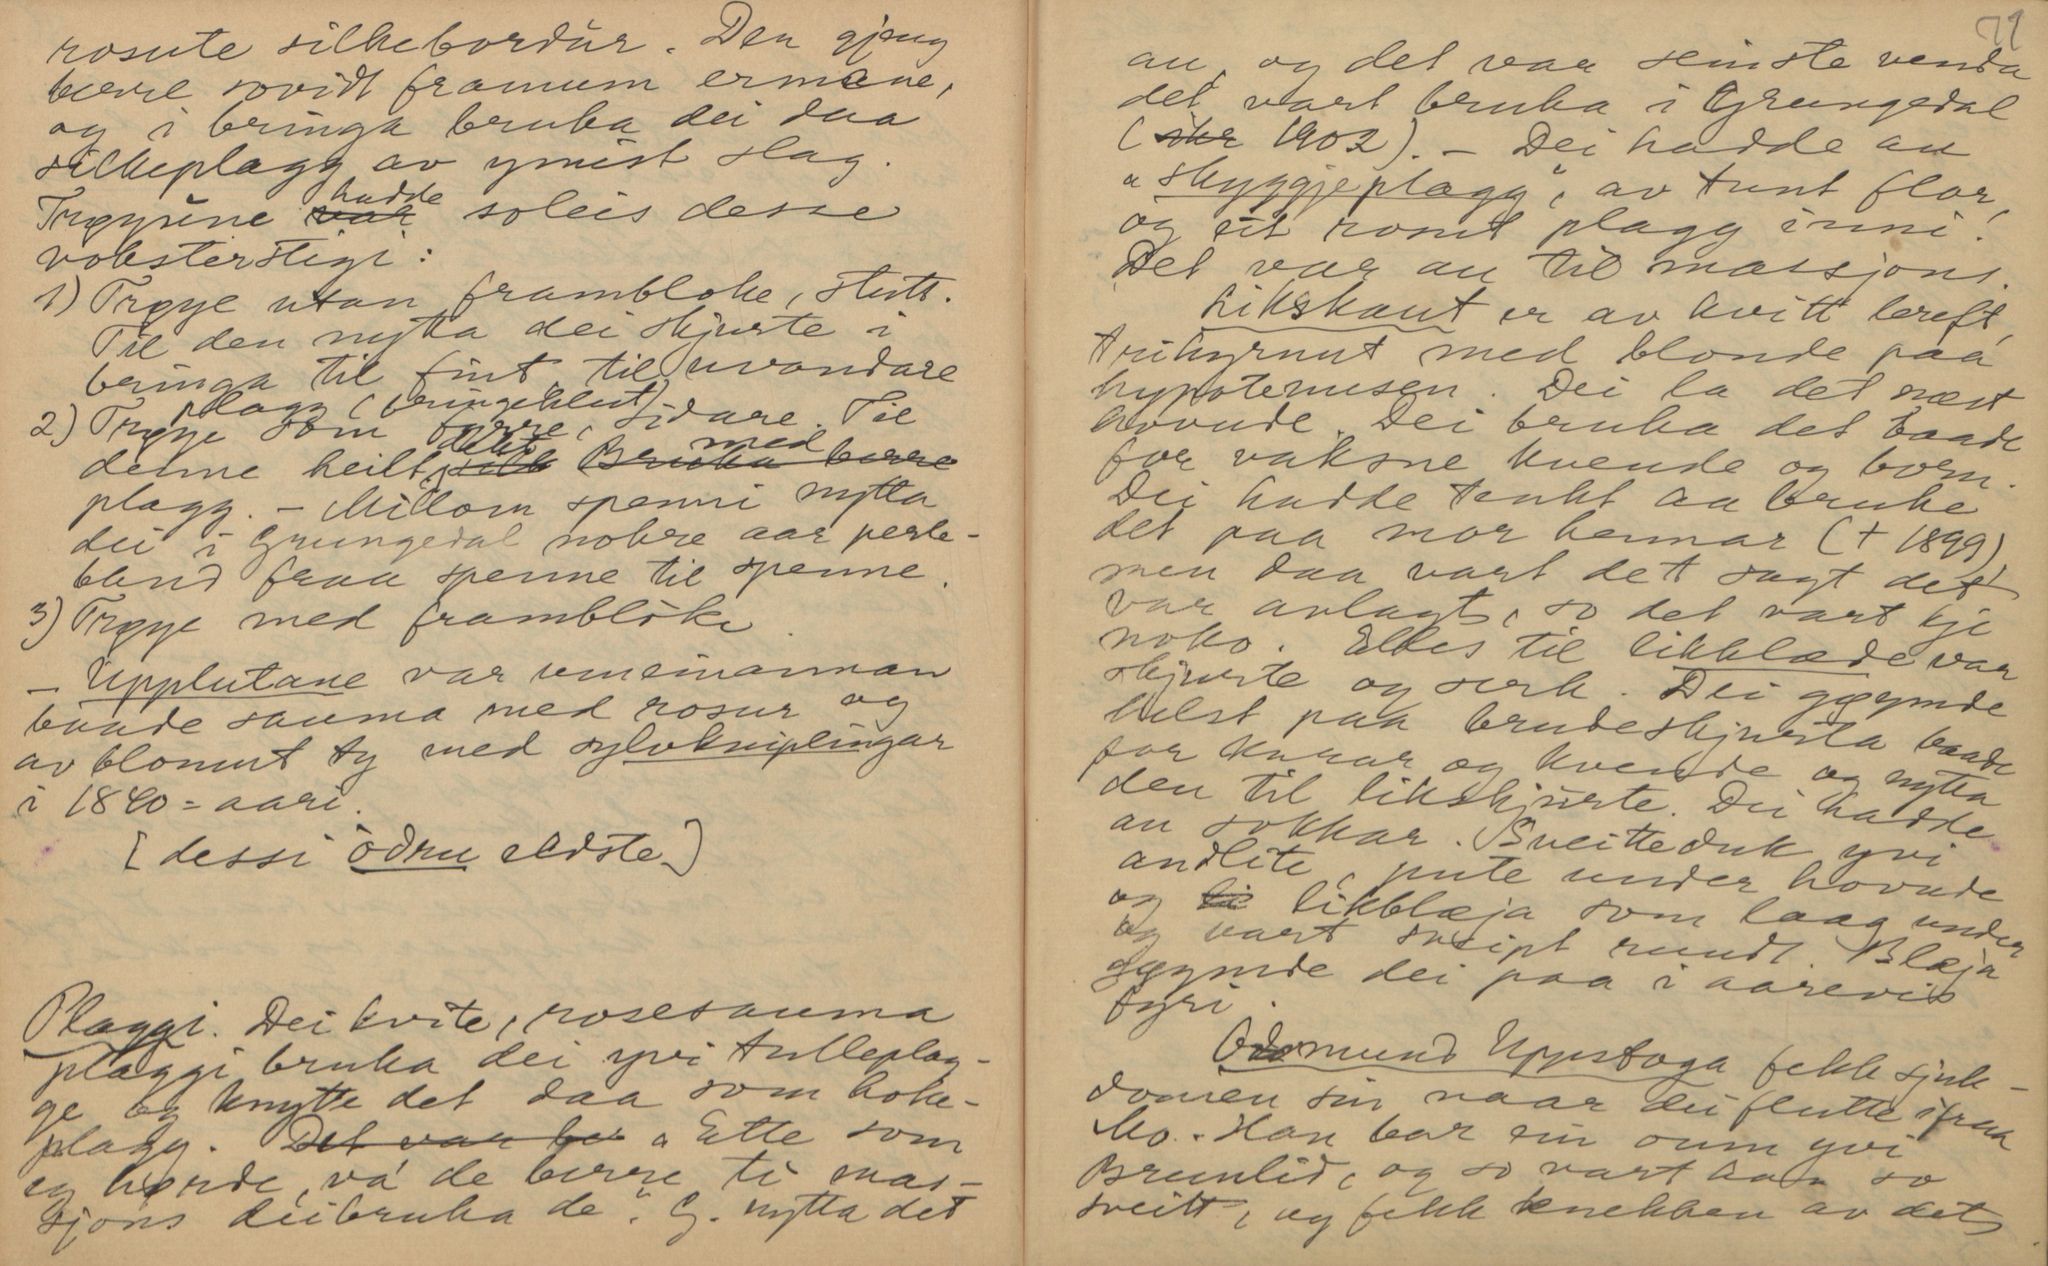 rosute silkebordūr. Den gjeng
berre sovidt framum ermane,
og i bringa bruka dei daa
silkeplagg av ymist slag.
Trøyüne hadde soleis desse
voksterstigi:
1) Trøye utan frambloke, stutt.
Til den nytta dei skjurte i
bringa til fint, til uvandare
plagg (bringeklut)
2) Trøye som fyrre, sidare. Til
denne heilt dekt med
plagg. – Millom spenni nytta
dei i Grungedal nokre aar perle-
band fraa spenne til spenne.
3) Trøye med framblōke.
– Upplutane var umeinannan
baade sauma med rosur og
av blomut ty med sylvkniplingar
i 1840-aari.
[dessi ödru eldste]
Plaggi. Dei kvite, rosesauma
plaggi bruka dei yvi tulleplag-
ge og knytte det daa som hoke-
plagg. Det var be "Ette som
eg hørde, va' de berre ti mas-
sjons dei bruka de". G. nytta det
71
au, og det var seinste venda
det vart bruka i Grungedal
(1902). – Dei hadde au
"skyggjeplagg", av tunt flor,
og eit romt plagg inni.
Det var au til massjons.
Likskaut er av kvitt lereft,
trihyrnut med blonde paa
hypotenusen. Dei la det næst
hovude. Dei bruka det baade
for vaksne kvende og born.
Dei hadde tenkt aa bruke
det paa mor hennar (+ 1899),
men daa vart det sagt det
var avlagt, so det vart kje
noko. Elles til likklæde var
skjurte og serk. Dei gøymde
helst paa brudeskjurta baade
for karar og kvende og nytta
den til likskjurte. Dei hadde
au sokkar. Sveitteduk yvi
andlite, pute under hovude
og li likblæja som laag under
og vart sveipt rundt. Blæja
gøymde dei paa i aarevis
fyri.
Aasmund Uppstoga fekk sjuk-
domen sin naar dei flutte ifraa
Mo. Han bar ein oum yvi
Brunlid, og so vart han so
sveitt, og fekk knekken av det